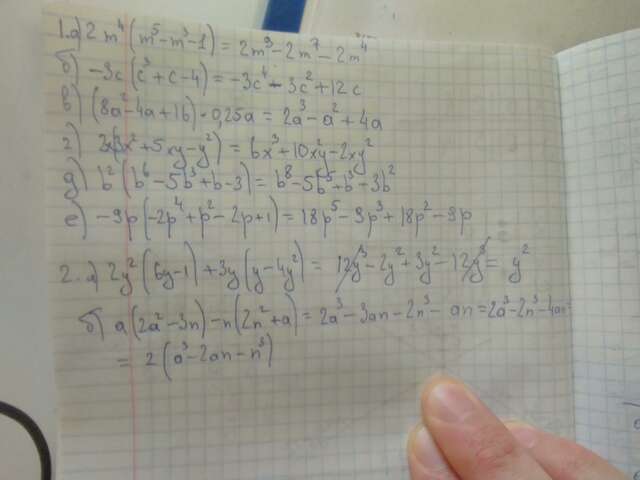 1.а) 2m⁴(m⁵-m³-1)=2m⁹-2m⁷-2m⁴
б) -3c(c³+c-4)=-3c⁴-3c²+12c
в) (8a²-4a+16)·0,25a=2a³-a²+4a
г) 2x(3x²+5xy-y²)=6x³+10x²y-2xy²
д) b²(b⁶-5b³+b-3)=b⁸-5b⁵+b³-3b²
е) -9p(-2p⁴+p²-2p+1)=18p⁵-9p³+18p²-9p
2.а) 2y²(6y-1)+3y(y-4y²)=12y³-2y²+3y²-12y³=y²
б) a(2a²-3n)-n(2n²+a)=2a³-3an-2n³-an=2a³-2n³-4an=
=2(a³-2an-n³)